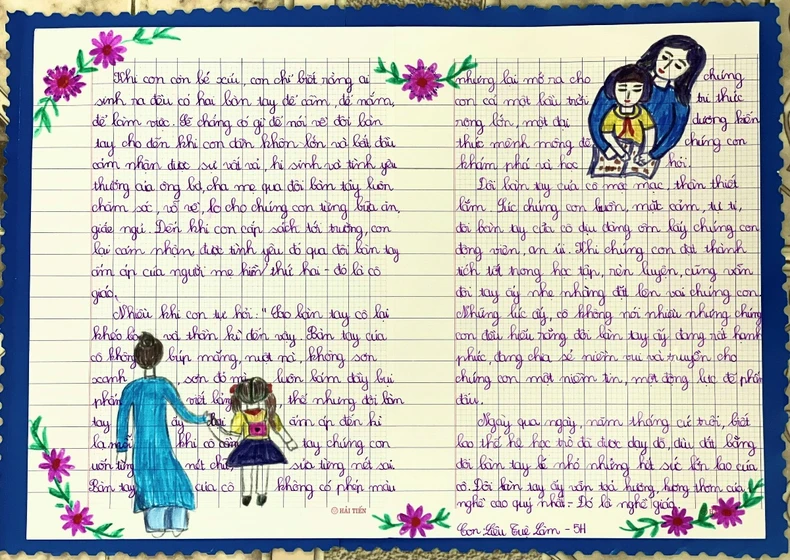 Khi con còn bé xíu, con chỉ biết rằng ai
sinh ra đều có hai bàn tay để cầm, để nắm,
để làm việc. Sẽ chẳng có gì để nói về đôi bàn
tay cho đến khi con dần khôn lớn và bắt đầu
cảm nhận được sự vất vả, hi sinh và tình yêu
thương của ông bà, cha mẹ qua đôi bàn tay luôn
chăm sóc, vỗ về, lo cho chúng con từng bữa ăn,
giấc ngủ. Đến khi con cắp sách tới trường, con
lại cảm nhận được tình yêu đó qua đôi bàn tay
ấm áp của người mẹ hiền thứ hai - đó là cô
giáo.
Nhiều khi con tự hỏi: "Sao bàn tay cô lại
khéo léo và thần kì đến vậy. Bàn tay của
cô không búp măng, nuột nà, không sơn
xanh sơn đỏ mà luôn bám đầy bụi
phấn viết bảng, thế nhưng đôi bàn
tay ấy lại ấm áp đến kì
lạ mỗi khi cô cầm tay chúng con
uốn từng nét chữ, sửa từng nét sai.
Bàn tay của cô không có phép màu
nhưng lại mở ra cho chúng
con cả một bầu trời tri thức
rộng lớn, một đại dương kiến
thức mênh mông để chúng con
khám phá và học hỏi.
Đôi bàn tay của cô mộc mạc, thân thiết
lắm. Lúc chúng con buồn, mặc cảm, tự ti,
đôi bàn tay của cô dịu dàng ôm lấy chúng con
động viên, an ủi. Khi chúng con đạt thành
tích tốt trong học tập, rèn luyện, cũng vẫn
đôi tay ấy nhẹ nhàng đặt lên vai chúng con.
Những lúc ấy, cô không nói nhiều nhưng chúng
con đều hiểu rằng đôi bàn tay ấy đang rất hạnh
phúc, đang chia sẻ niềm vui và truyền cho
chúng con một niềm tin, một động lực để phấn
đấu.
Ngày qua ngày, năm tháng cứ trôi, biết
bao thế hệ học trò đã được dạy dỗ, dìu dắt bằng
đôi bàn tay bé nhỏ nhưng hết sức lớn lao của
cô. Đôi bàn tay ấy vẫn toả hương, hương thơm của
nghề cao quý nhất - Đó là nghề giáo.
Con Liêu Tuệ Lâm - 5H
HẢI TIẾN